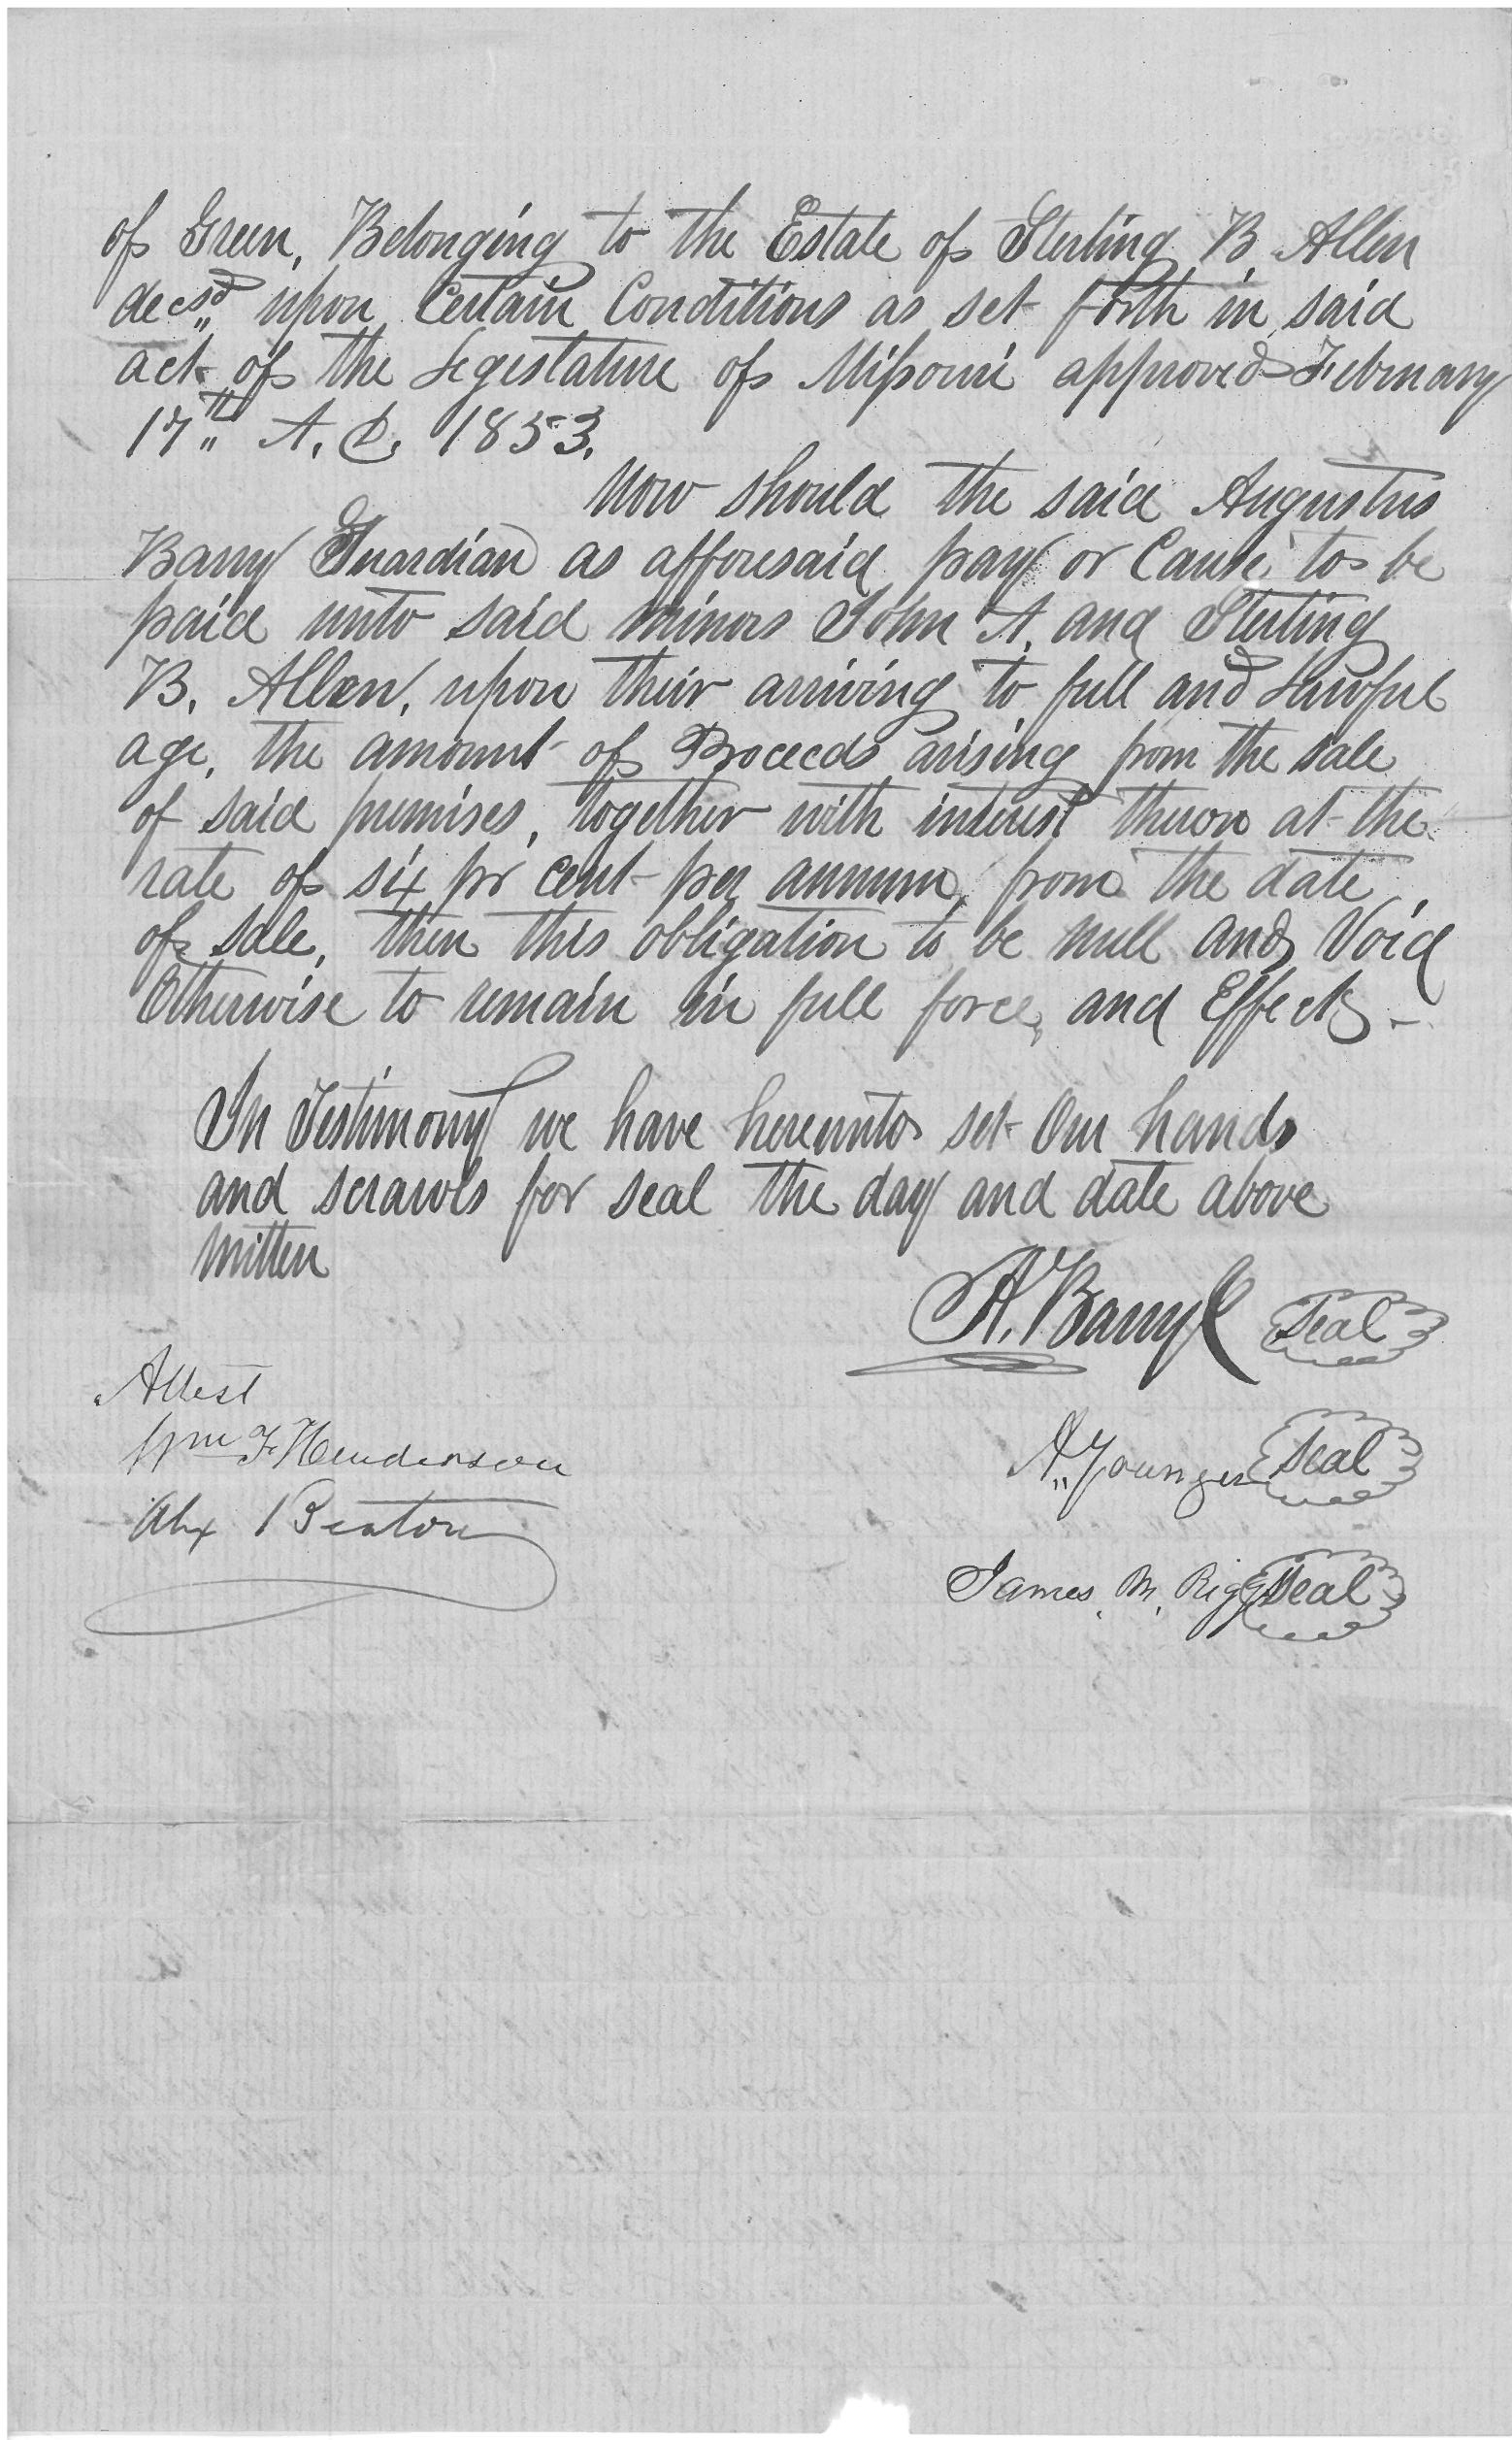 of Green, Belonging to the Estate of Sterling B Allen
decsd upon Certain Conditions as set forth in said
act of the Legistature of Missouri approved February
17th A. D. 1853.
Now should the said Augustus
Barry Guardian as afforesaid pay or Cause to be
paid unto said minors John A. and Sterling
B. Allen, upon their arriving to full and Lawful
age, the amount of Proceeds arising from the sale
of said premises, together with interest thereon at the
rate of six pr cent per annum, from the date
of sale, then this obligation to be null and Void
Otherwise to remain in full force, and Effect -
In Testimony we have hereunto set Our hands
and scrawls for seal the day and date above
written
A. Barry Seal
Attest
Wm F. Henderson
A. Younger Seal
Alx Benton
James. M. Riggs Seal